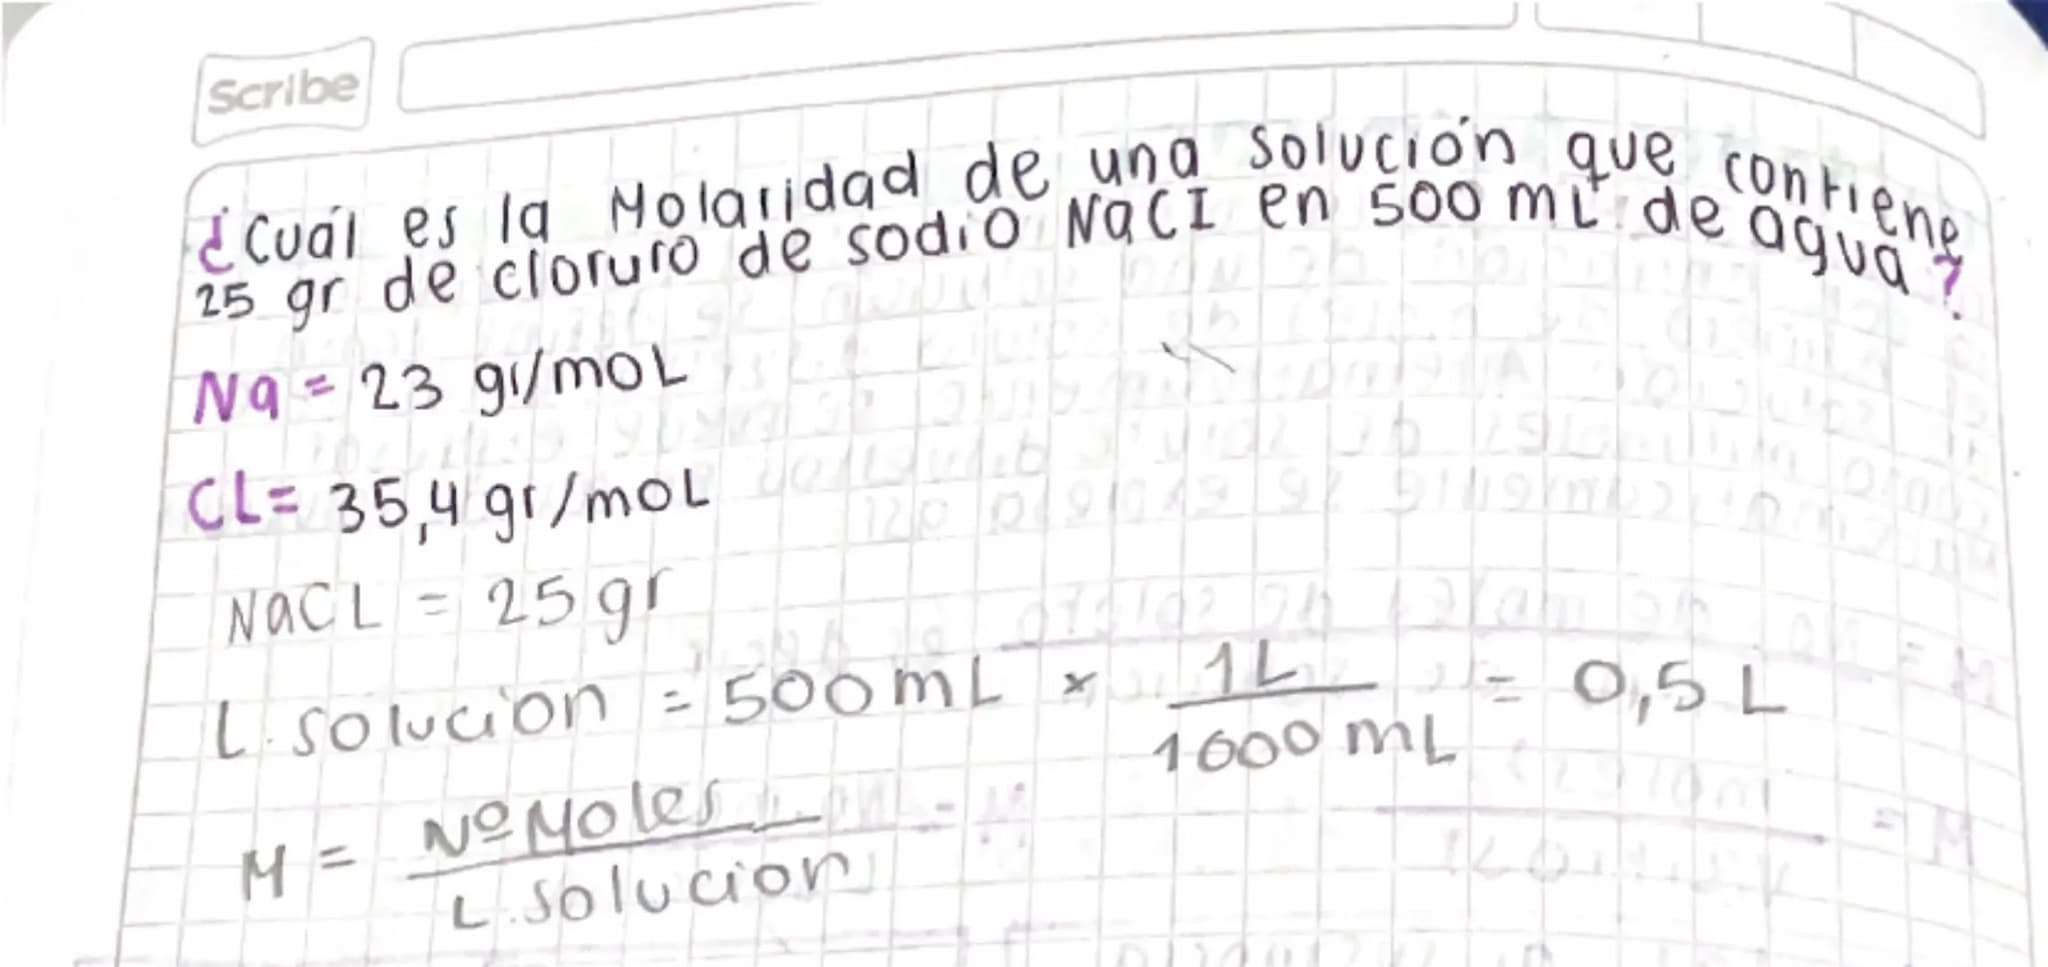 Scribe
¿Cuál es la Molaridad de una solución que contiene
25 gr de cloruro de sodio NaCI en 500 mL de agua?
Na = 23 gr/moL
CL= 35,4 gr/moL
NaCL = 25 gr
L. solucion = 500 mL x 1L / 1000 mL = 0,5 L
M = Nº Moles / L. solucion